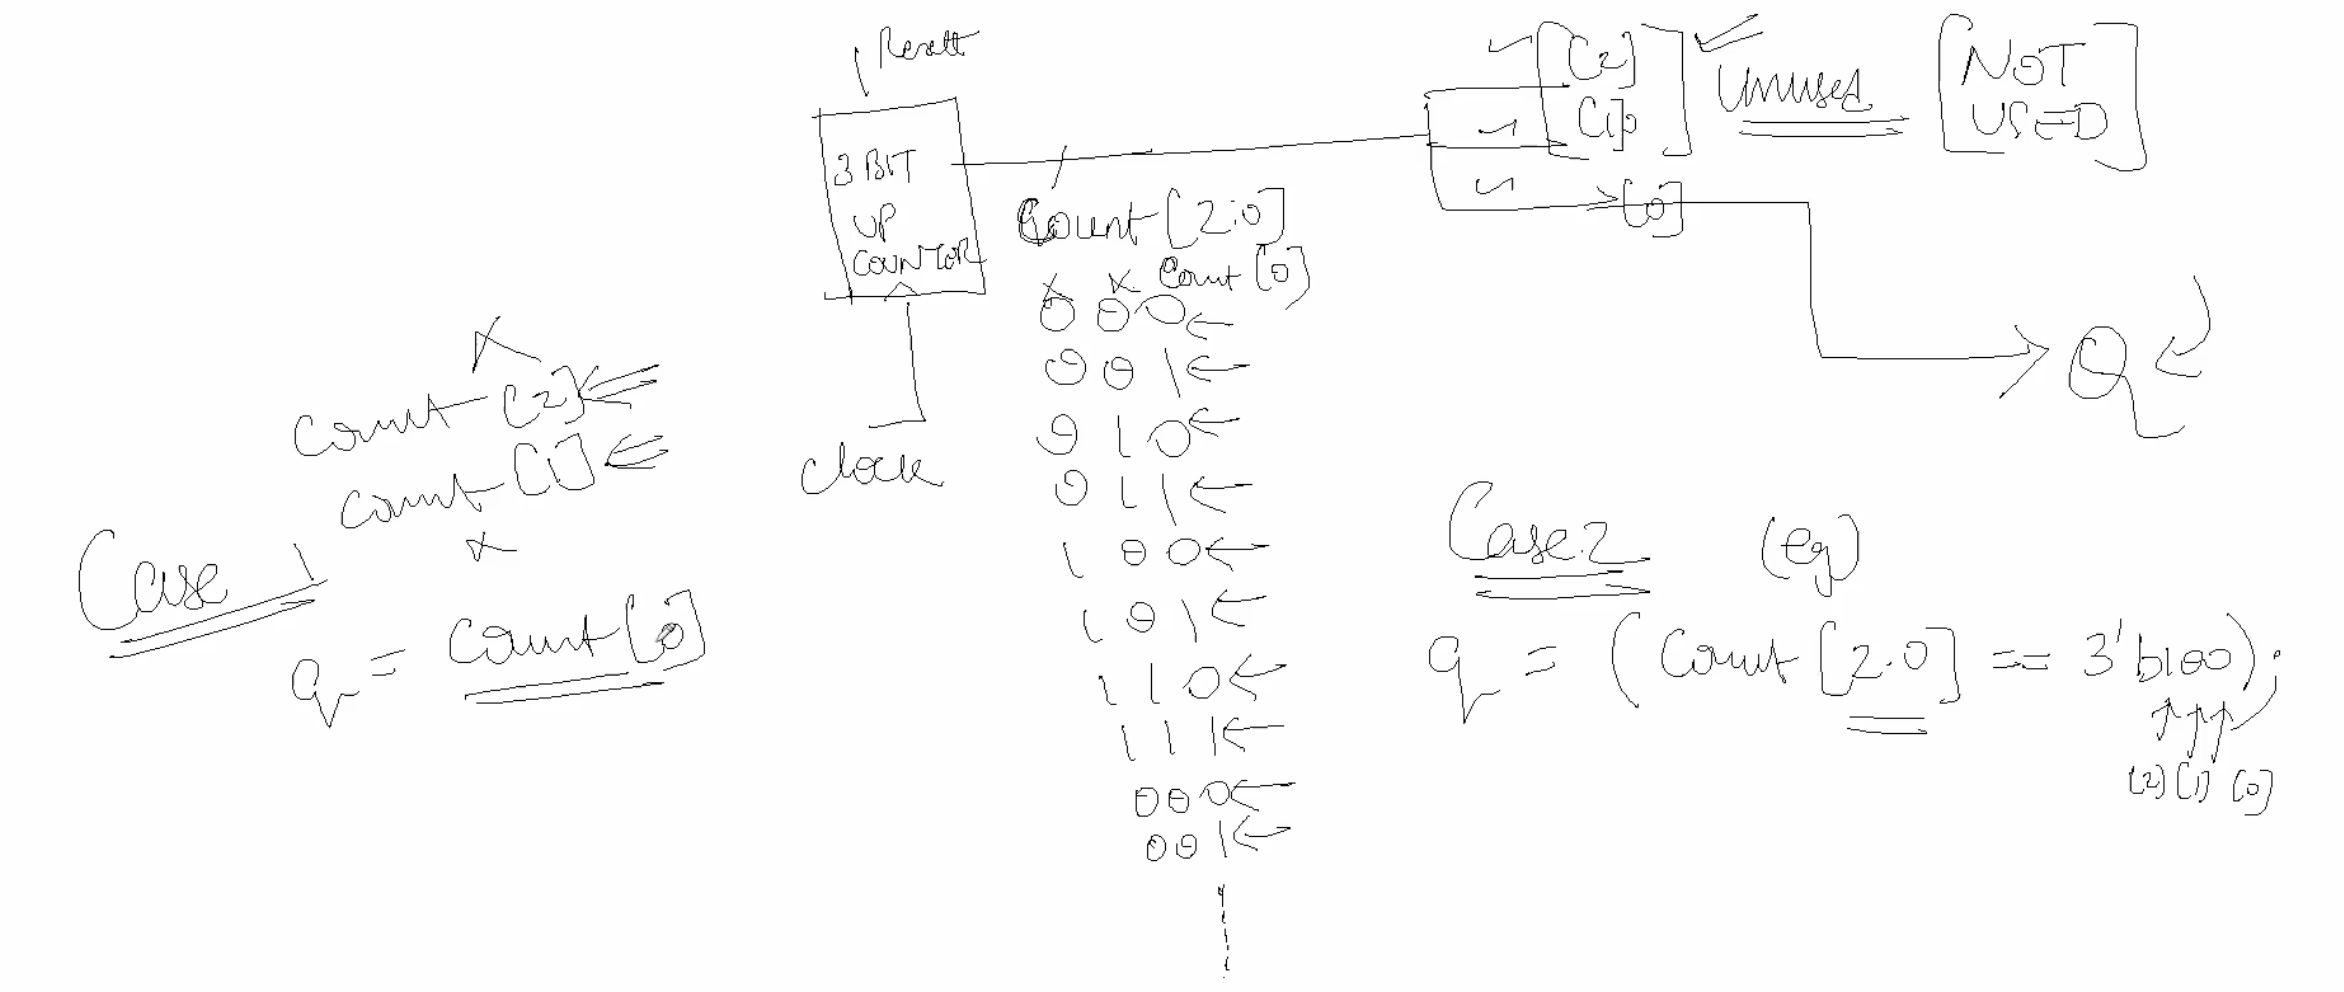 Resett
3 BIT
UP
COUNTOR
clock
Count [2:0]
x x Count [0]
0 0 0
0 0 1
0 1 0
0 1 1
1 0 0
1 0 1
1 1 0
1 1 1
0 0 0
0 0 1
[2]
[1]
[0]
Unused
[NOT
USED]
Q
x
count [2]
count [1]
x
Case 1
q = count [0]
Case 2 (eg)
q = (Count [2:0] == 3'b100);
[2] [1] [0]